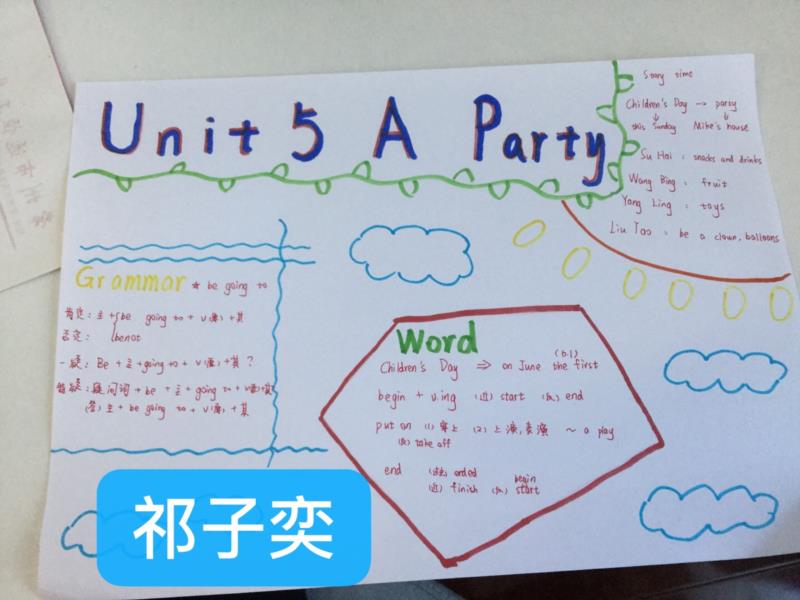 Unit 5 A Party
Story time
Children's Day → party
↓ ↓
this Sunday Mike's house
Su Hai : snacks and drinks
Wang Bing : fruit
Yang Ling : toys
Liu Tao : be a clown, balloons
Grammar ★ be going to
肯定: 主 + be going to + V(原) + 其
否定: benot
一疑: Be + 主 + going to + V(原) + 其 ?
特疑: 疑问词 + be + 主 + going to + V(原) + 其
(答) 主 + be going to + V(原) + 其
Word
(6.1)
Children's Day ⇒ on June the first
begin + v.ing (近) start (反) end
put on (1) 穿上 (2) 上演,表演 ~ a play
(反) take off
end (过去) ended begin
(近) finish (反) start
祁子奕